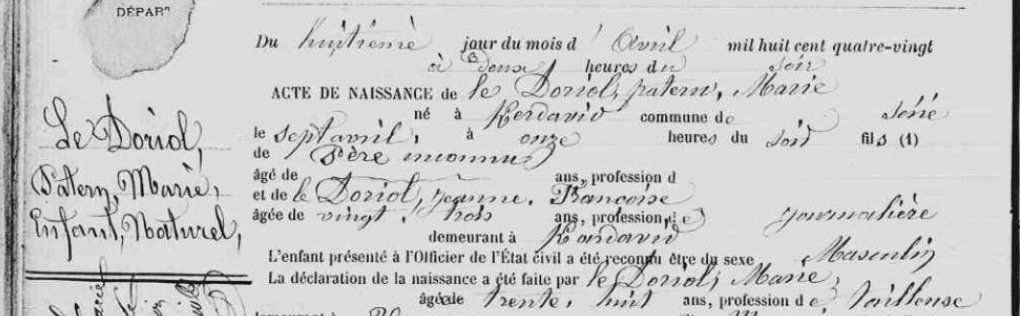 DÉPART
Du huitième jour du mois d' Avril mil huit cent quatre-vingt
à Deux heures du soir
ACTE DE NAISSANCE de le Doriol, patern, Marie
né à Kerdavid commune de Séné
le sept avril, à onze heures du soir fils (1)
de Père inconnu
âgé de ans, profession d
et de le Doriol, jeanne, Françoise
âgée de vingt, trois ans, profession, de journalière
demeurant à Kardavid
L'enfant présenté à l'Officier de l'État civil a été reconnu être du sexe Masculin
La déclaration de la naissance a été faite par le Doriol, Marie,
âgée de trente, huit ans, profession de tailleuse
demeurant à
Le Doriol,
Patern, Marie,
Enfant, Naturel,